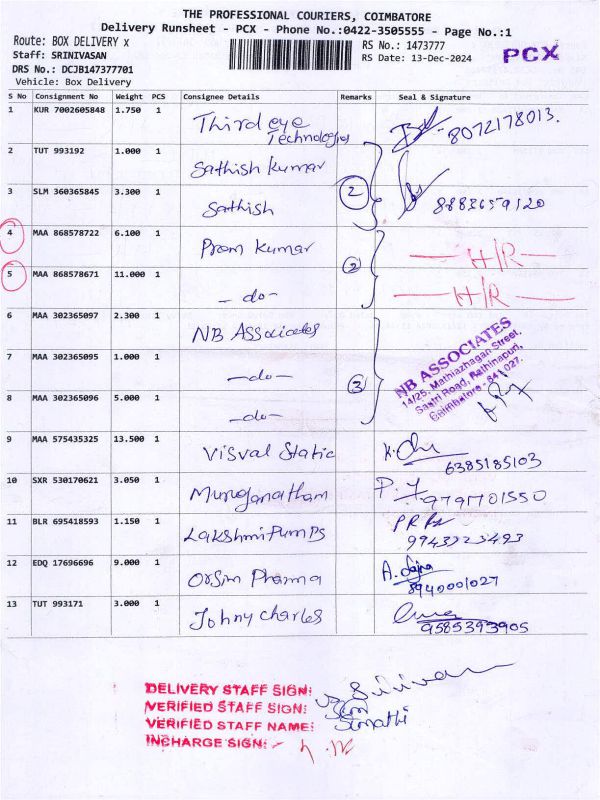 THE PROFESSIONAL COURIERS, COIMBATORE
Delivery Runsheet - PCX - Phone No.:0422-3505555 - Page No.:1
Route: BOX DELIVERY x
Staff: SRINIVASAN
DRS No.: DCJB147377701
Vehicle: Box Delivery
RS No.: 1473777
RS Date: 13-Dec-2024
PCX
S No Consignment No Weight PCS Consignee Details Remarks Seal & Signature
1 KUR 7002605848 1.750 1 Third eye Technologies 8072178013.
2 TUT 993192 1.000 1 Sathish Kumar
2
3 SLM 360365845 3.300 1 Sathish 8883659120
4 MAA 868578722 6.100 1 Prem Kumar H/R
2
5 MAA 868578671 11.000 1 - do - H/R
6 MAA 302365097 2.300 1 NB Associates
7 MAA 302365095 1.000 1 - do -
3
8 MAA 302365096 5.000 1 - do -
NB ASSOCIATES
14/25, Mathiazhagan Street,
Sastri Road, Rathinapuri,
Coimbatore - 641 027.
9 MAA 575435325 13.500 1 Visval Static 6385185103
10 SXR 530170621 3.050 1 Muruganatham 9797701550
11 BLR 695418593 1.150 1 Lakshmi Pumps 9943223493
12 EDQ 17696696 9.000 1 Orsim Pharma 8940001027
13 TUT 993171 3.000 1 Johny charles 9585393905
DELIVERY STAFF SIGN:
VERIFIED STAFF SIGN:
VERIFIED STAFF NAME:
INCHARGE SIGN: